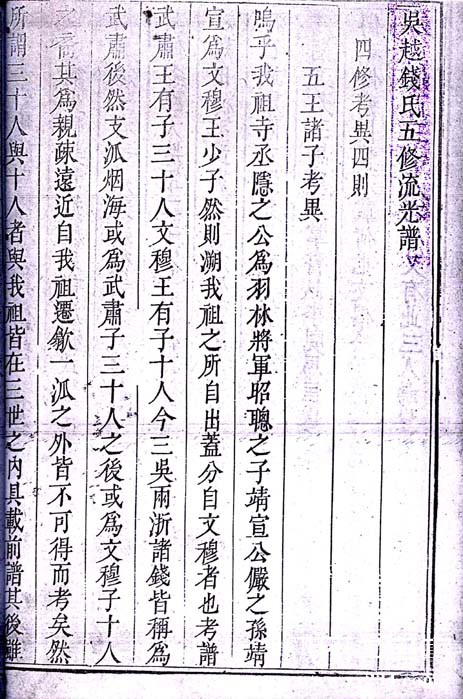 吳越錢氏五修流光譜
四修考異四則
五王諸子考異
嗚乎我祖寺丞隱之公爲羽林將軍昭聰之子靖宣公儼之孫靖
宣爲文穆王少子然則溯我祖之所自出蓋分自文穆者也考譜
武肅王有子三十人文穆王有子十人今三吳兩浙諸錢皆稱爲
武肅後然支派烟海或爲武肅子三十人之後或爲文穆子十人
之裔其爲親疎遠近自我祖遷歙一派之外皆不可得而考矣然
所謂三十人與十人者與我祖皆在三世之內具載前譜其後雖